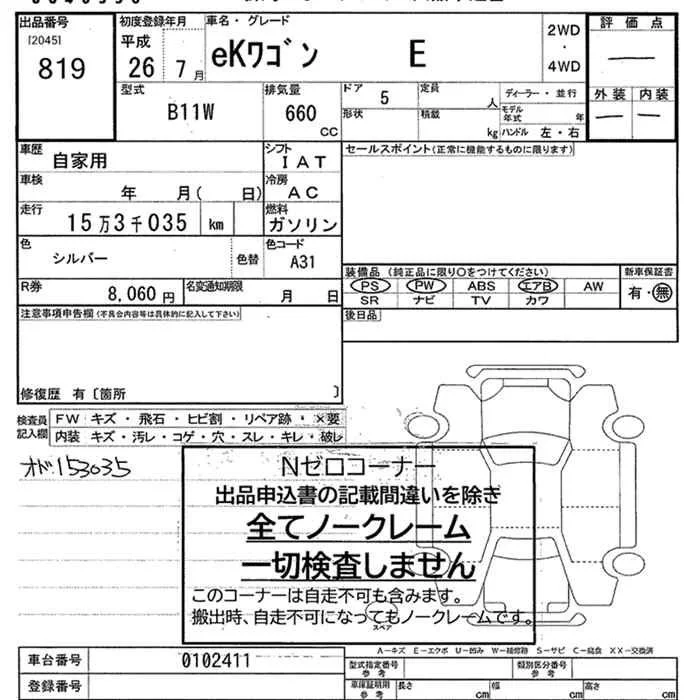 出品番号
[2045]
819
初度登録年月
平成
26 7月
車名・グレード
eKワゴン E
2WD
・
4WD
評価点
―
外装 内装
― ―
型式
B11W
排気量
660
CC
ドア 5
定員
人
形状
積載
kg
ディーラー・並行
モデル年式 年
ハンドル 左・右
車歴
自家用
シフト
IAT
車検
年 月( 日)
冷房
AC
走行
15万3千035 km
燃料
ガソリン
色
シルバー
色替
色コード
A31
R券
8,060円
名変通知期限
月 日
セールスポイント(正常に機能するものに限ります)
装備品 (純正品に限り○をつけてください)
PS PW ABS エアB AW
SR ナビ TV カワ
新車保証書
有・無
後日品
注意事項申告欄(不具合内容等は具体的に記入して下さい)
修復歴 有〔箇所 〕
検査員記入欄
FW キズ・飛石・ヒビ割・リペア跡・×要
内装 キズ・汚レ・コゲ・穴・スレ・キレ・破レ
オド:153035
Nゼロコーナー
出品申込書の記載間違いを除き
全てノークレーム
一切検査しません
このコーナーは自走不可も含みます。
搬出時、自走不可になってもノークレームです。
スペア
A―キズ E―エクボ U―凹み W―補修跡 S―サビ C―腐食 XX―交換済
車台番号 0102411
登録番号
型式指定番号
参考
類別区分番号
参考
車庫証明用
参考
長さ cm
幅 cm
高さ cm